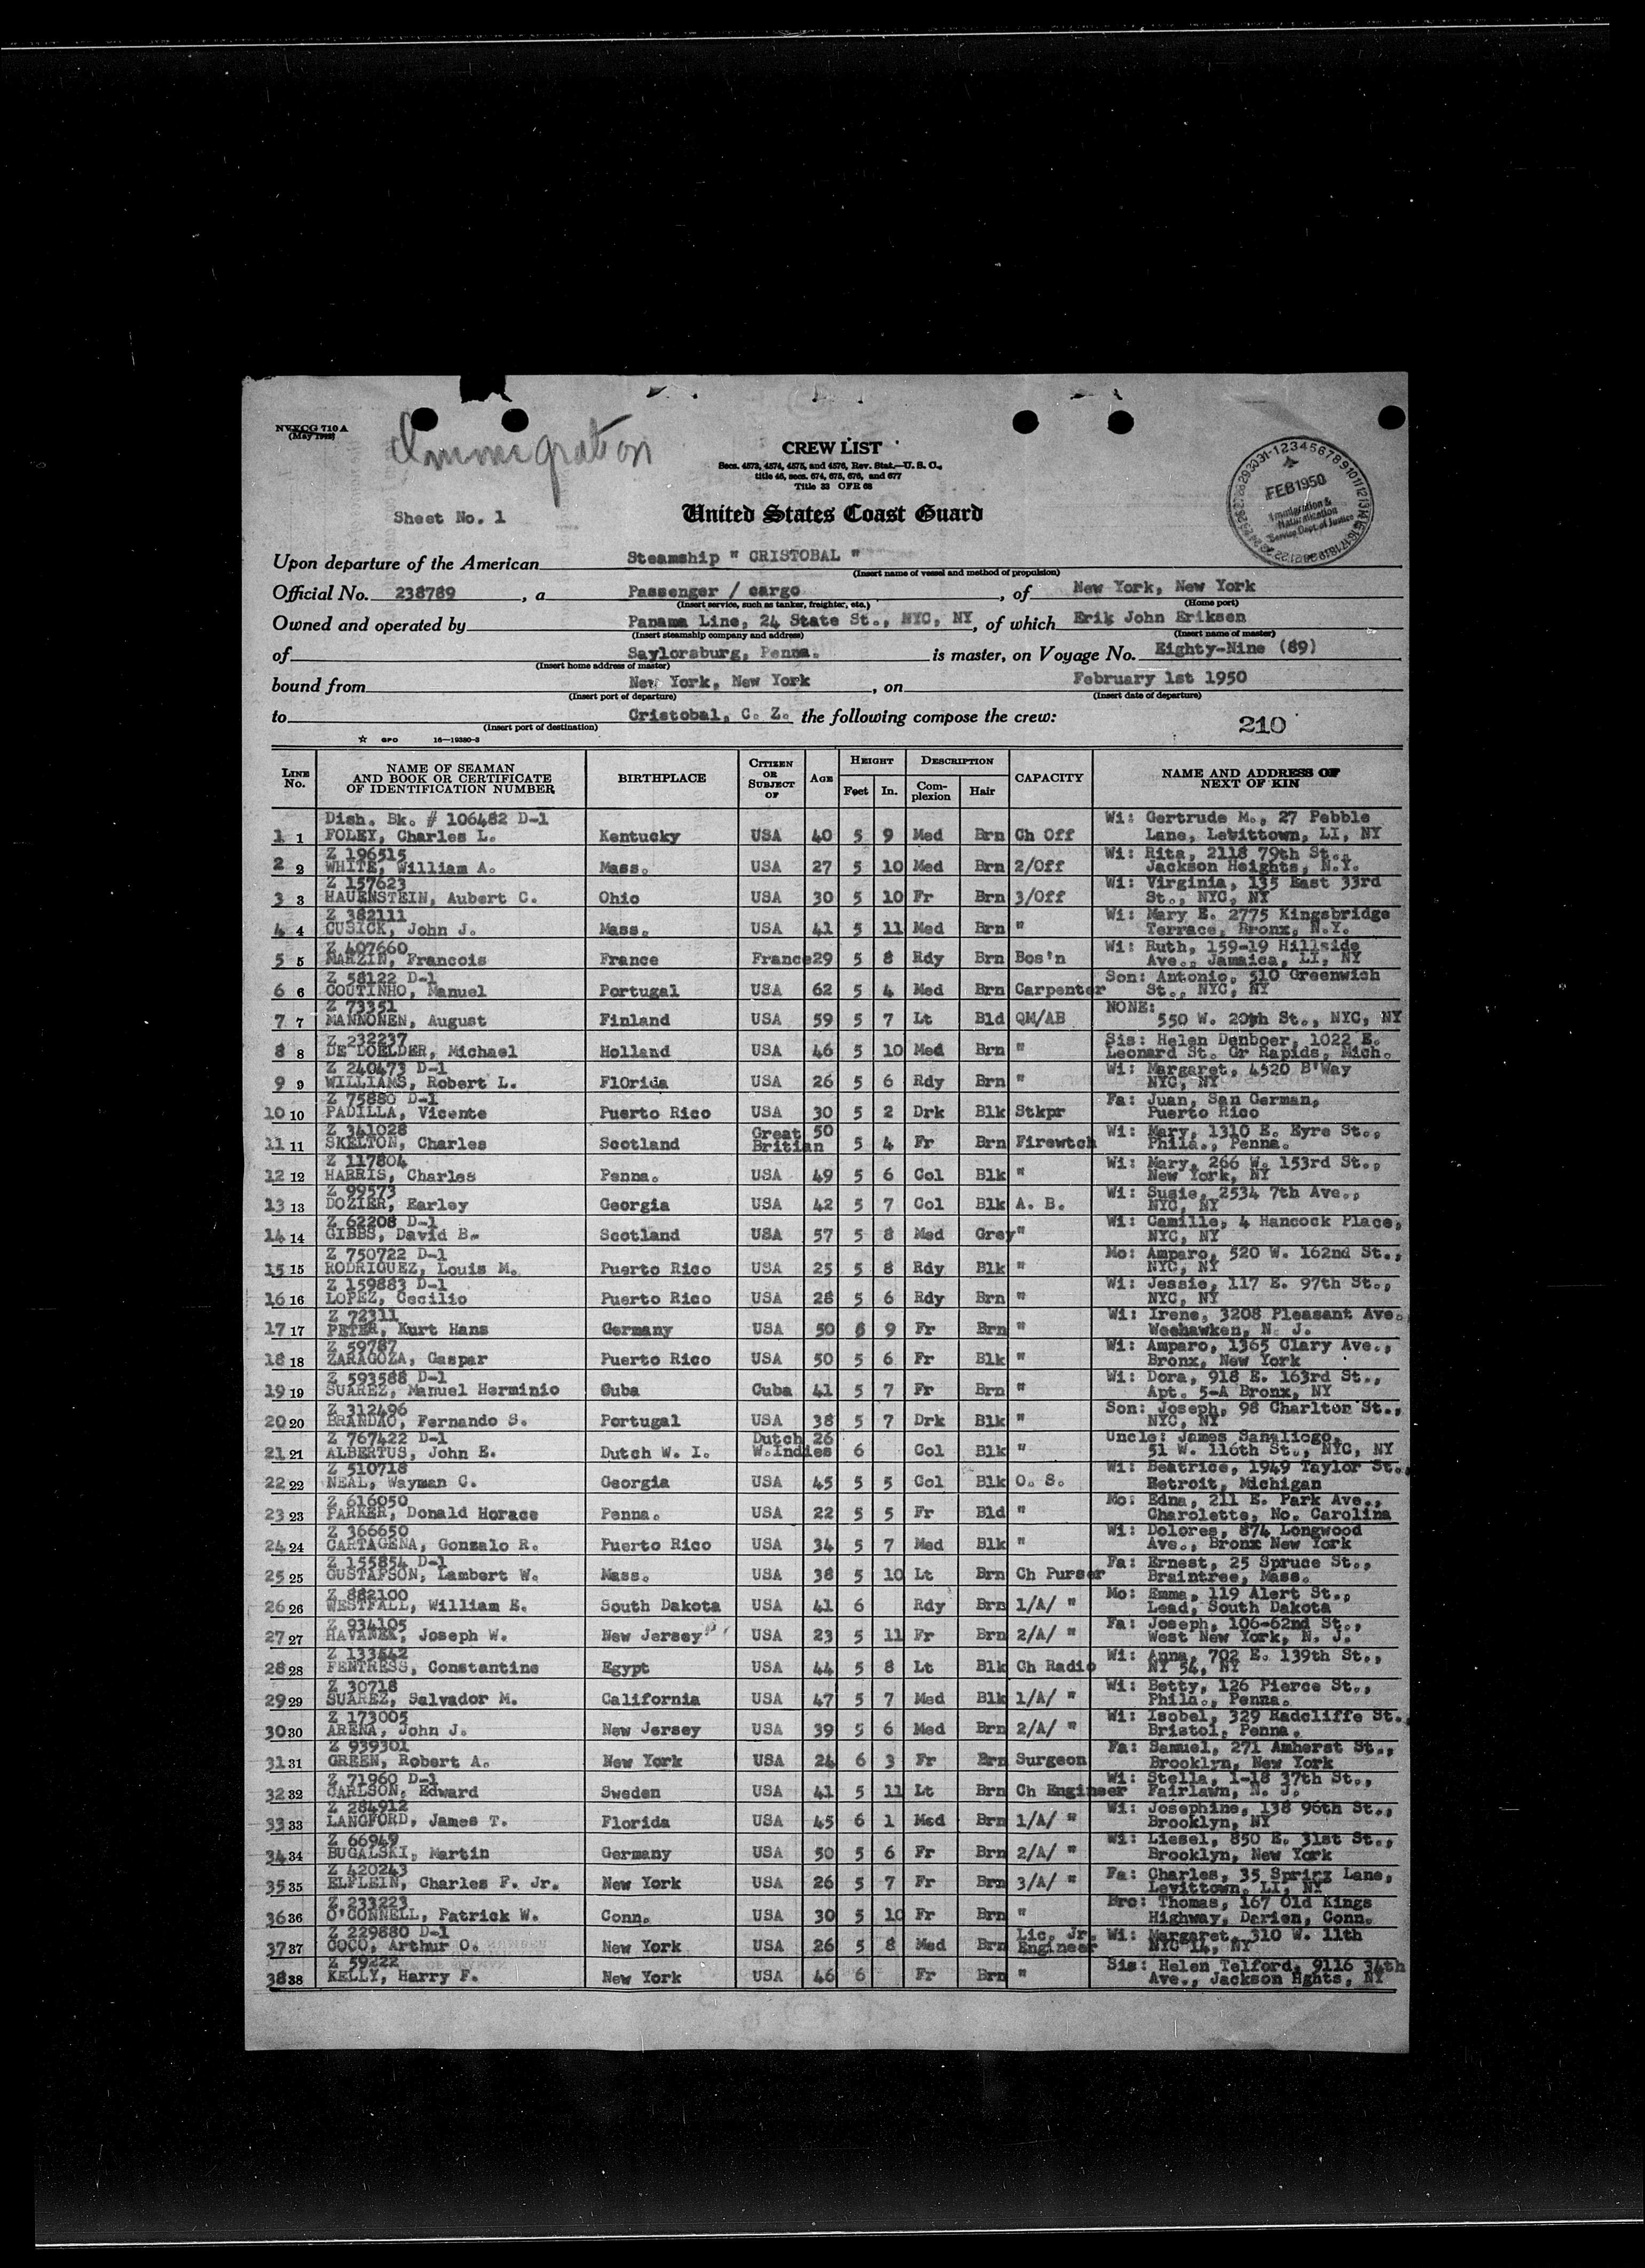 NVXCG 710 A
(May 1948)
Immigration
CREW LIST
Secs. 4573, 4574, 4575, and 4576, Rev. Stat.—U. S. C.,
title 46, secs. 674, 675, 676, and 677
Title 33 CFR 68
Sheet No. 1
United States Coast Guard
FEB 1950
Immigration &
Naturalization
Service Dept. of Justice
Upon departure of the American Steamship " CRISTOBAL "
(Insert name of vessel and method of propulsion)
Official No. 238789, a Passenger / cargo, of New York, New York
(Insert service, such as tanker, freighter, etc.) (Home port)
Owned and operated by Panama Line, 24 State St., NYC, NY, of which Erik John Eriksen
(Insert steamship company and address) (Insert name of master)
of Saylorsburg, Penna. is master, on Voyage No. Eighty-Nine (89)
(Insert home address of master)
bound from New York, New York, on February 1st 1950
(Insert port of departure) (Insert date of departure)
to Cristobal, C. Z. the following compose the crew:
(Insert port of destination)
210
☆ GPO 16—19380-3
LINE No. NAME OF SEAMAN AND BOOK OR CERTIFICATE OF IDENTIFICATION NUMBER BIRTHPLACE CITIZEN OR SUBJECT OF AGE HEIGHT Feet In. DESCRIPTION Complexion Hair CAPACITY NAME AND ADDRESS OF NEXT OF KIN
Dish. Bk. # 106482 D-1 Wi: Gertrude M., 27 Pebble
1 1 FOLEY, Charles L. Kentucky USA 40 5 9 Med Brn Ch Off Lane, Levittown, LI, NY
Z 196515 Wi: Rita, 2118 79th St.,
2 2 WHITE, William A. Mass. USA 27 5 10 Med Brn 2/Off Jackson Heights, N.Y.
Z 157623 Wi: Virginia, 135 East 33rd
3 3 HAUENSTEIN, Aubert C. Ohio USA 30 5 10 Fr Brn 3/Off St., NYC, NY
Z 382111 Wi: Mary E. 2775 Kingsbridge
4 4 CUSICK, John J. Mass. USA 41 5 11 Med Brn " Terrace, Bronx, N.Y.
Z 407660 Wi: Ruth, 159-19 Hillside
5 5 MARZIN, Francois France France 29 5 8 Rdy Brn Bos'n Ave., Jamaica, LI, NY
Z 58122 D-1 Son: Antonio, 510 Greenwich
6 6 COUTINHO, Manuel Portugal USA 62 5 4 Med Brn Carpenter St., NYC, NY
Z 73351 NONE:
7 7 MANNONEN, August Finland USA 59 5 7 Lt Bld QM/AB 550 W. 20th St., NYC, NY
Z 232237 Sis: Helen Denboer, 1022 E.
8 8 DE DOELDER, Michael Holland USA 46 5 10 Med Brn " Leonard St. Gr Rapids, Mich.
Z 240473 D-1 Wi: Margaret, 4520 B'Way
9 9 WILLIAMS, Robert L. FlOrida USA 26 5 6 Rdy Brn " NYC, NY
Z 75880 D-1 Fa: Juan, San German,
10 10 PADILLA, Vicente Puerto Rico USA 30 5 2 Drk Blk Stkpr Puerto Rico
Z 341028 Great 50 Wi: Mary, 1310 E. Eyre St.,
11 11 SKELTON, Charles Scotland Britian 5 4 Fr Brn Firewtch Phila., Penna.
Z 117804 Wi: Mary, 266 W. 153rd St.,
12 12 HARRIS, Charles Penna. USA 49 5 6 Col Blk " New York, NY
Z 99573 Wi: Susie, 2534 7th Ave.,
13 13 DOZIER, Earley Georgia USA 42 5 7 Col Blk A. B. NYC, NY
Z 62208 D-1 Wi: Camille, 4 Hancock Place,
14 14 GIBBS, David B. Scotland USA 57 5 8 Med Grey " NYC, NY
Z 750722 D-1 Mo: Amparo, 520 W. 162nd St.,
15 15 RODRIQUEZ, Louis M. Puerto Rico USA 25 5 8 Rdy Blk " NYC, NY
Z 159883 D-1 Wi: Jessie, 117 E. 97th St.,
16 16 LOPEZ, Cecilio Puerto Rico USA 28 5 6 Rdy Brn " NYC, NY
Z 72311 Wi: Irene, 3208 Pleasant Ave.
17 17 PETER, Kurt Hans Germany USA 50 5 9 Fr Brn " Weehawken, N. J.
Z 59787 Wi: Amparo, 1365 Clary Ave.,
18 18 ZARAGOZA, Gaspar Puerto Rico USA 50 5 6 Fr Blk " Bronx, New York
Z 593588 D-1 Wi: Dora, 918 E. 163rd St.,
19 19 SUAREZ, Manuel Herminio Cuba Cuba 41 5 7 Fr Brn " Apt. 5-A Bronx, NY
Z 312496 Son: Joseph, 98 Charlton St.,
20 20 BRANDAO, Fernando S. Portugal USA 38 5 7 Drk Blk " NYC, NY
Z 767422 D-1 Dutch 26 Uncle: James Sanaliogo,
21 21 ALBERTUS, John E. Dutch W. I. W.Indies 6 Col Blk " 51 W. 116th St., NYC, NY
Z 510718 Wi: Beatrice, 1949 Taylor St.,
22 22 NEAL, Wayman C. Georgia USA 45 5 5 Col Blk O. S. Detroit, Michigan
Z 616050 Mo: Edna, 211 E. Park Ave.,
23 23 PARKER, Donald Horace Penna. USA 22 5 5 Fr Bld " Charolette, No. Carolina
Z 366650 Wi: Dolores, 874 Longwood
24 24 CARTAGENA, Gonzalo R. Puerto Rico USA 34 5 7 Med Blk " Ave., Bronx New York
Z 155854 D-1 Fa: Ernest, 25 Spruce St.,
25 25 GUSTAFSON, Lambert W. Mass. USA 38 5 10 Lt Brn Ch Purser Braintree, Mass.
Z 882100 Mo: Emma, 119 Alert St.,
26 26 WESTFALL, William E. South Dakota USA 41 6 Rdy Brn 1/A/ " Lead, South Dakota
Z 934105 Fa: Joseph, 106-62nd St.,
27 27 HAVANEK, Joseph W. New Jersey USA 23 5 11 Fr Brn 2/A/ " West New York, N. J.
Z 133542 Wi: Anna, 702 E. 139th St.,
28 28 FENTRESS, Constantine Egypt USA 44 5 8 Lt Blk Ch Radio NY 54, NY
Z 30718 Wi: Betty, 126 Pierce St.,
29 29 SUAREZ, Salvador M. California USA 47 5 7 Med Blk 1/A/ " Phila., Penna.
Z 173005 Wi: Isobel, 329 Radcliffe St.,
30 30 ARENA, John J. New Jersey USA 39 5 6 Med Brn 2/A/ " Bristol, Penna.
Z 939301 Fa: Samuel, 271 Amherst St.,
31 31 GREEN, Robert A. New York USA 24 6 3 Fr Brn Surgeon Brooklyn, New York
Z 71960 D-1 Wi: Stella, 1-18 37th St.,
32 32 CARLSON, Edward Sweden USA 41 5 11 Lt Brn Ch Engineer Fairlawn, N. J.
Z 284912 Wi: Josephine, 138 96th St.,
33 33 LANGFORD, James T. Florida USA 45 6 1 Med Brn 1/A/ " Brooklyn, NY
Z 66949 Wi: Liesel, 850 E. 31st St.,
34 34 BUGALSKI, Martin Germany USA 50 5 6 Fr Brn 2/A/ " Brooklyn, New York
Z 420243 Fa: Charles, 35 Spring Lane,
35 35 ELFLEIN, Charles F. Jr. New York USA 26 5 7 Fr Brn 3/A/ " Levittown, LI, NY
Z 233223 Bro: Thomas, 167 Old Kings
36 36 O'CONNELL, Patrick W. Conn. USA 30 5 10 Fr Brn " Highway, Darien, Conn.
Z 229880 D-1 Lic. Jr. Wi: Margaret, 310 W. 11th
37 37 COCO, Arthur O. New York USA 26 5 8 Med Brn Engineer NYC 14, NY
Z 59222 Sis: Helen Telford, 9116 34th
38 38 KELLY, Harry F. New York USA 46 6 Fr Brn " Ave., Jackson Hghts, NY